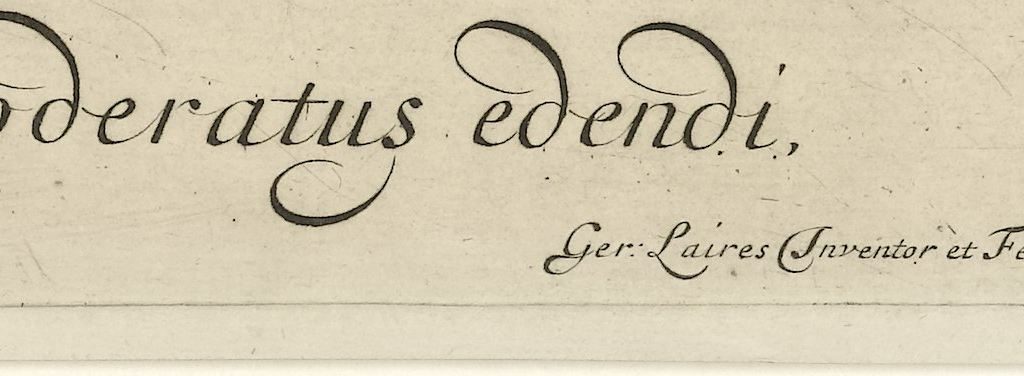 oderatus edendi,
Ger: Laires Inventor et Fe